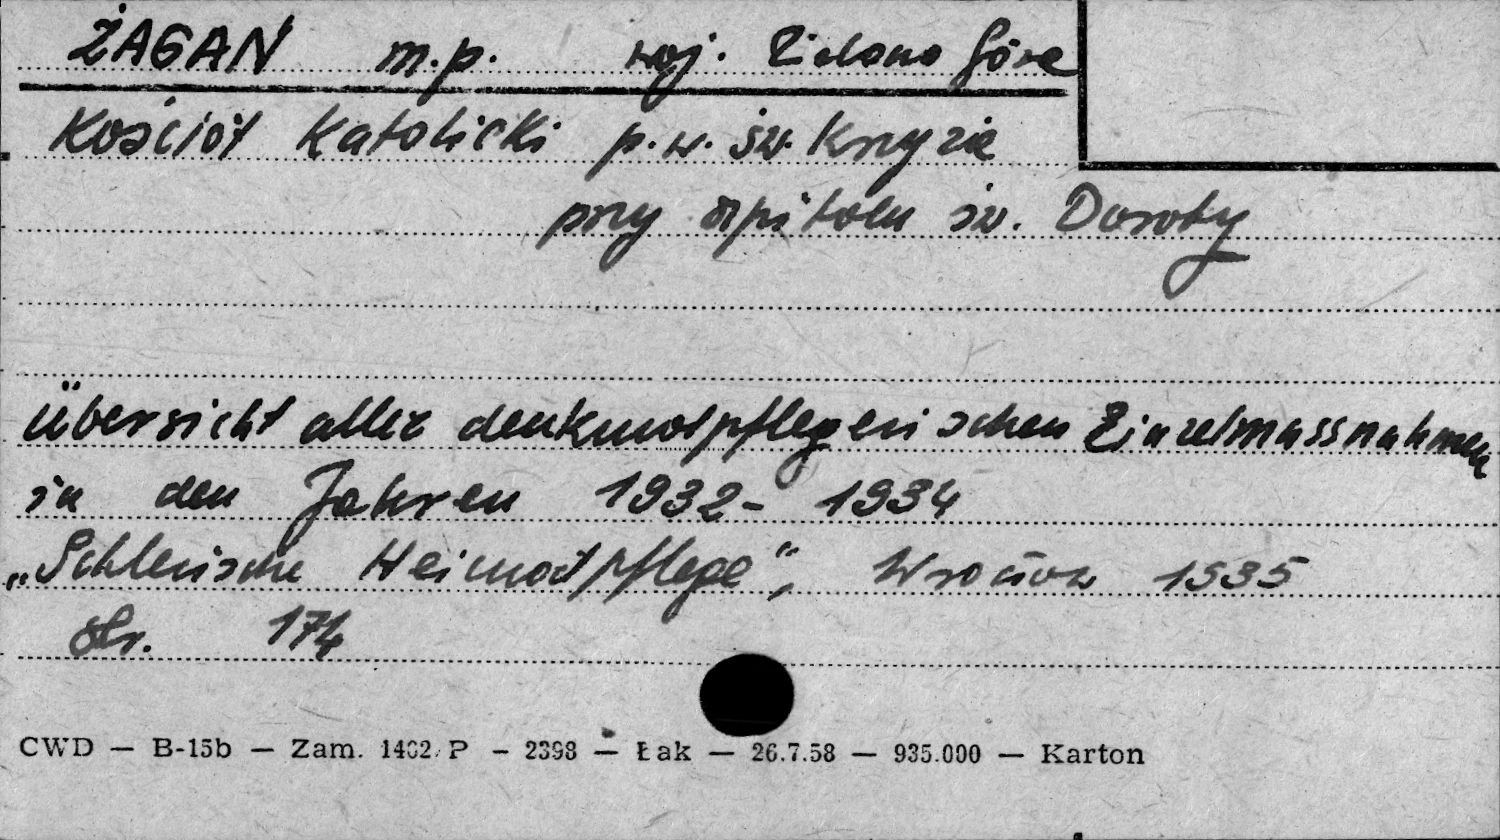 ŻAGAŃ m.p. woj. Zielona Góra
Kościół Katolicki p.w. św. Krzyża
przy szpitalu św. Doroty
Übersicht aller denkmalpflegerischen Einzelmassnahmen
in den Jahren 1932-1934
„Schlesische Heimatpflege", Wrocław 1935
str. 174
CWD — B-15b — Zam. 1402/P — 2398 — Łak — 26.7.58 — 935.000 — Karton